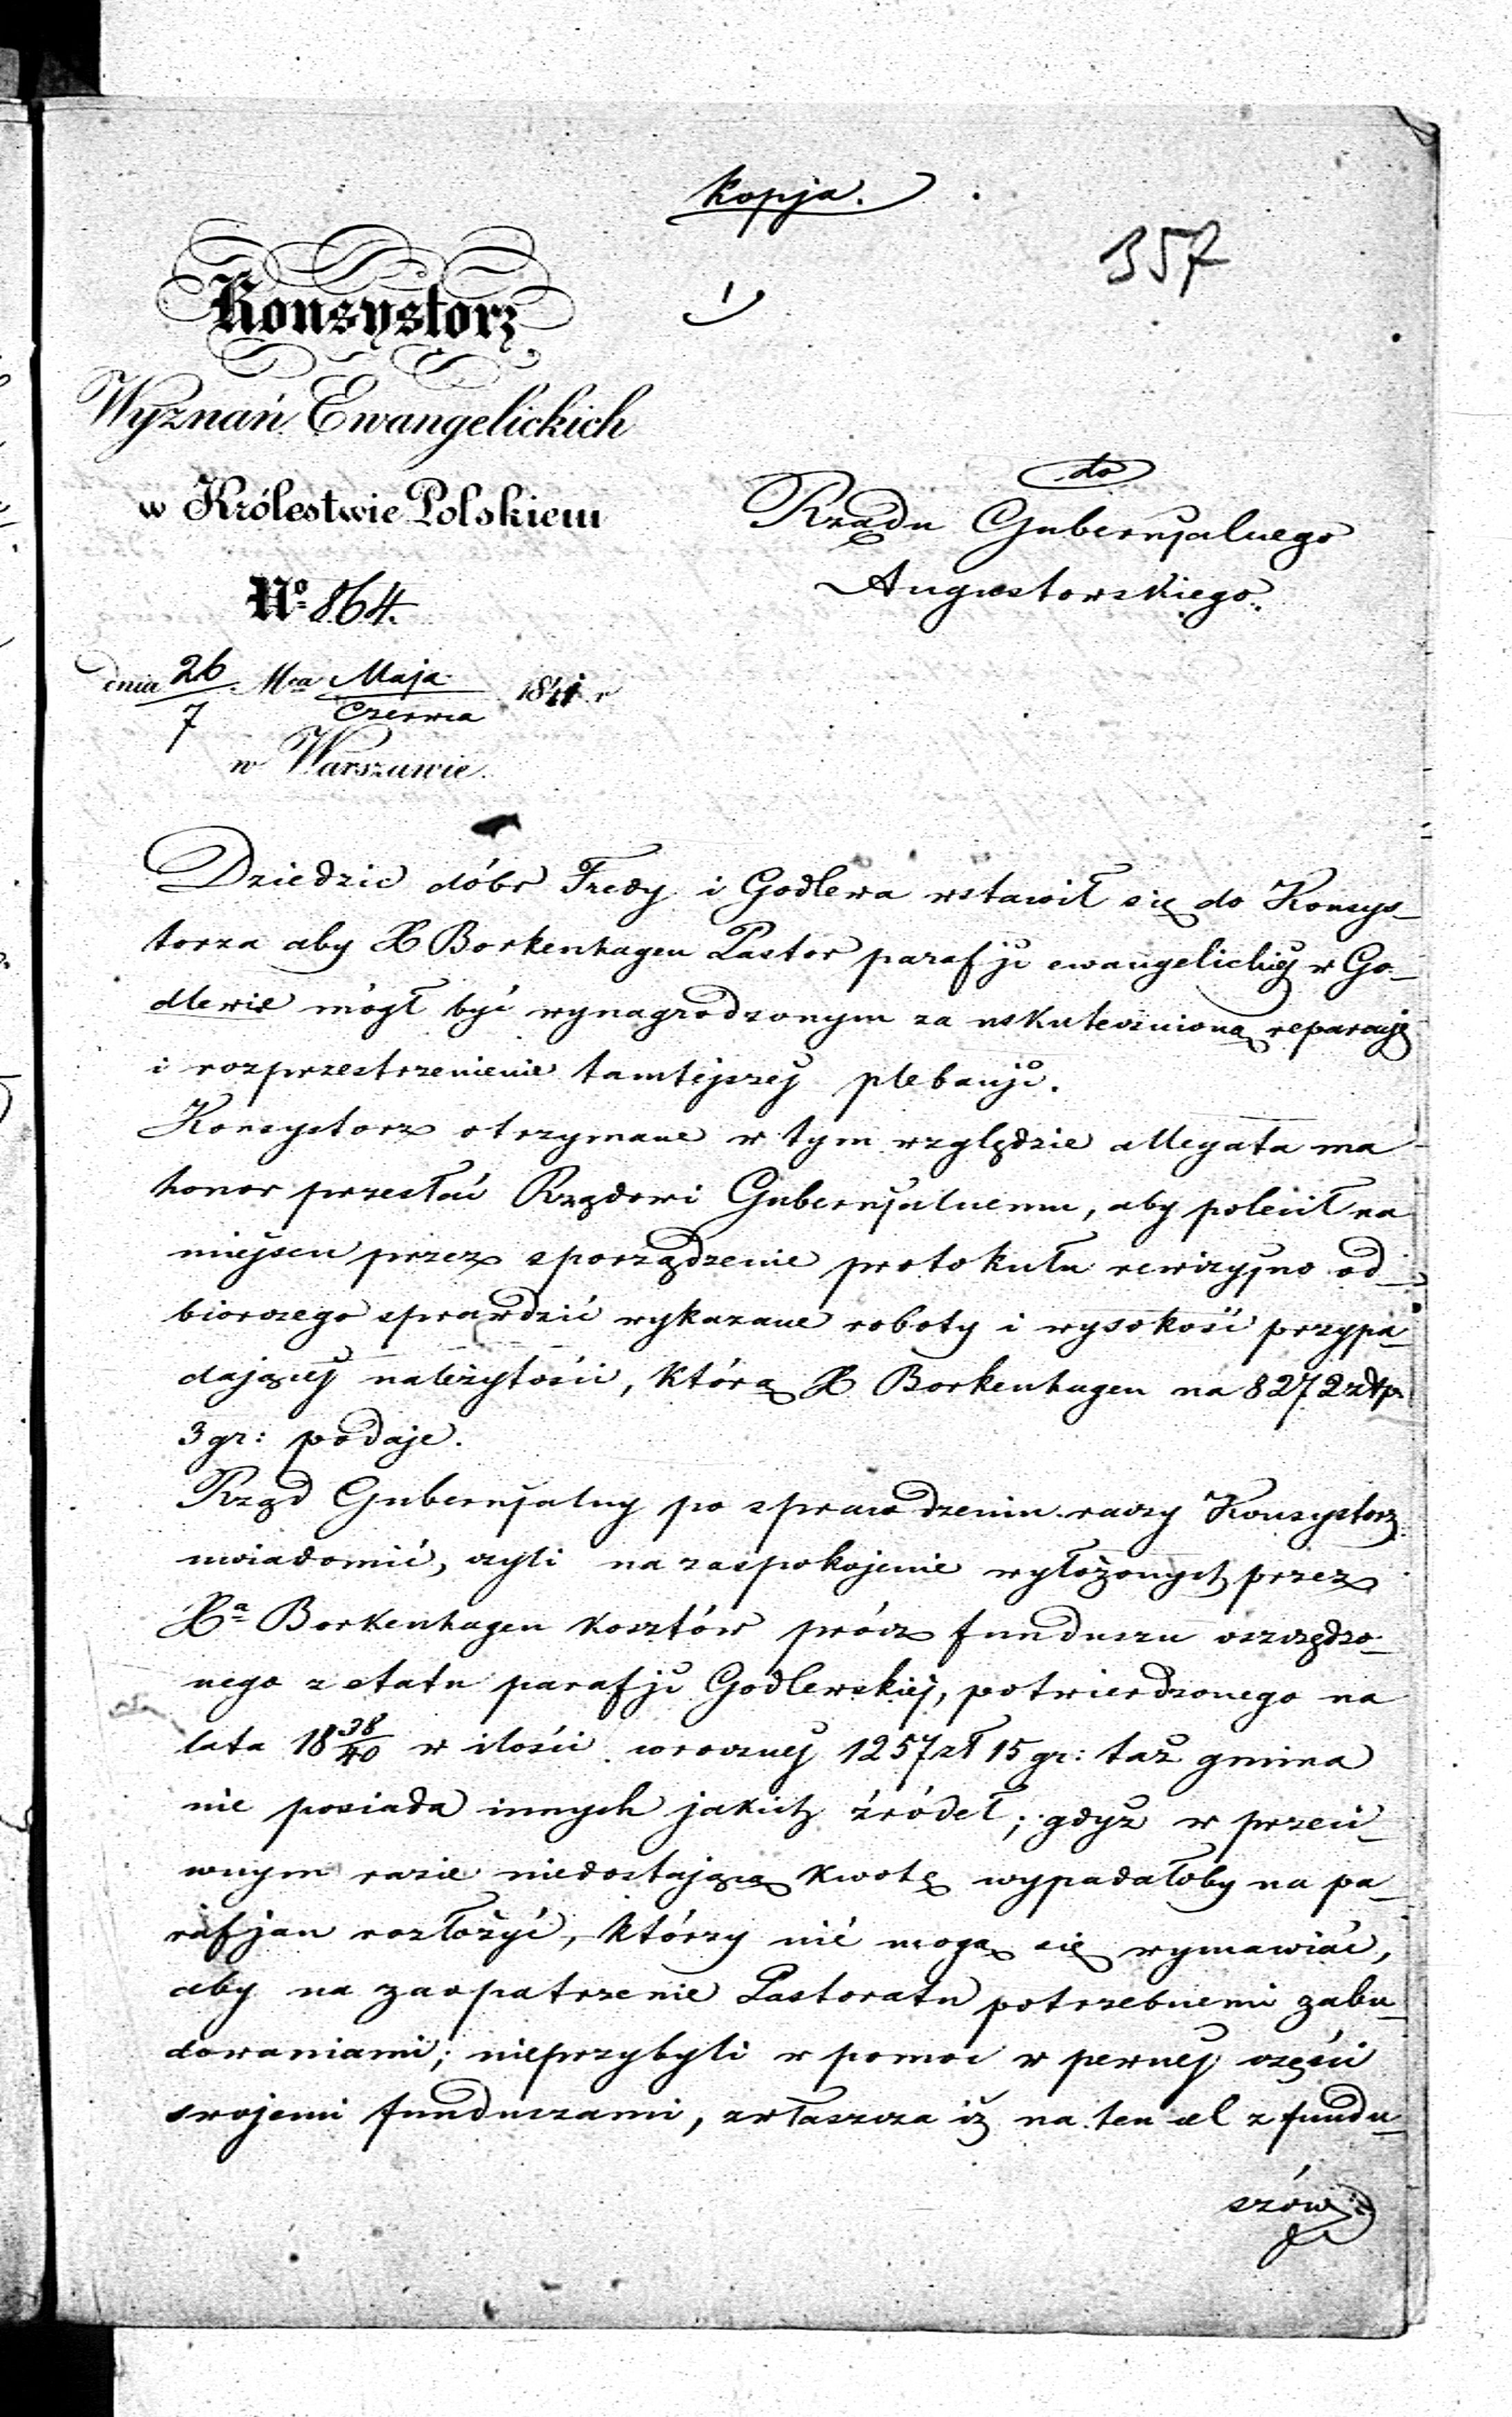 Kopja.
357
1
Konsystorz
Wyznań Ewangelickich
w Królestwie Polskiem
No. 864.
dnia 26/7 Mca Maja/Czerwca 1841 r
w Warszawie.
do
Rządu Gubernjalnego
Augustowskiego.
Dziedzic dóbr Fredy i Godlewa wstawił się do Konsys-
torza aby X Borkenhagen Pastor parafji ewangelickiej w Go-
dlewie mógł być wynagrodzonym za uskutecznioną reparację
i rozprzestrzenienie tamtejszej plebanji.
Konsystorz otrzymane w tym względzie allegata ma
honor przesłać Rządowi Gubernjalnemu, aby polecił na
miejscu przez sporządzenie protokułu rewizyjno od-
biorczego sprawdzić wykazane roboty i wysokość przypa-
dającej należytości, którą X Borkenhagen na 8272 złp
3 gr: podaje.
Rząd Gubernjalny po sprawdzeniu raczy Konsystorz
uwiadomić, czyli na zaspokojenie wyłożonych przez
Xa Borkenhagen kosztów prócz funduszu oszczędzo-
nego z etatu parafji Godlewskiej, potwierdzonego na
lata 18 38/40 w ilości corocznej 1257 zł 15 gr: taż gmina
nie posiada innych jakich źródeł; gdyż w przeci-
wnym razie niedostającą kwotę wypadałoby na pa-
rafjan rozłożyć, którzy nie mogą się wymawiać,
aby na zaopatrzenie Pastoratu potrzebnemi zabu-
dowaniami; nieprzybyli w pomoc w pewnej części
swojemi funduszami, zwłaszcza iż na ten cel z fundu-
szów